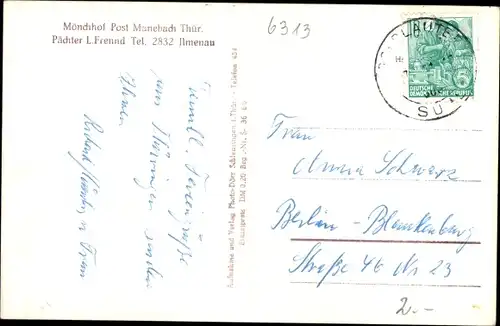 Mönchhof Post Manebach Thür.
Pächter L.Freund Tel. 2832 Ilmenau
6313
Famil. Feriengrüße
aus Thüringen senden
Ihnen
u. Frau
Aufnahme und Verlag Photo-Dörr Schleusingen i.Thür. - Telefon 424
Einzelpreis DM 0,20 Reg.-Nr. S 36
DEUTSCHE
DEMOKRATISCHE REPUBLIK
5
Frau
Anna Schwarz
Berlin-Blankenburg
Straße 46 Nr 23
2.-